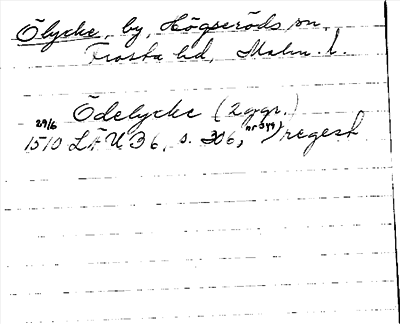 Ölycke, by, Högseröds sn,
Frosta hd, Malm. l.
Ödelycke (2 ggr.)
29/6 1510 LÄU 36, s. 306, (nr 349) regest